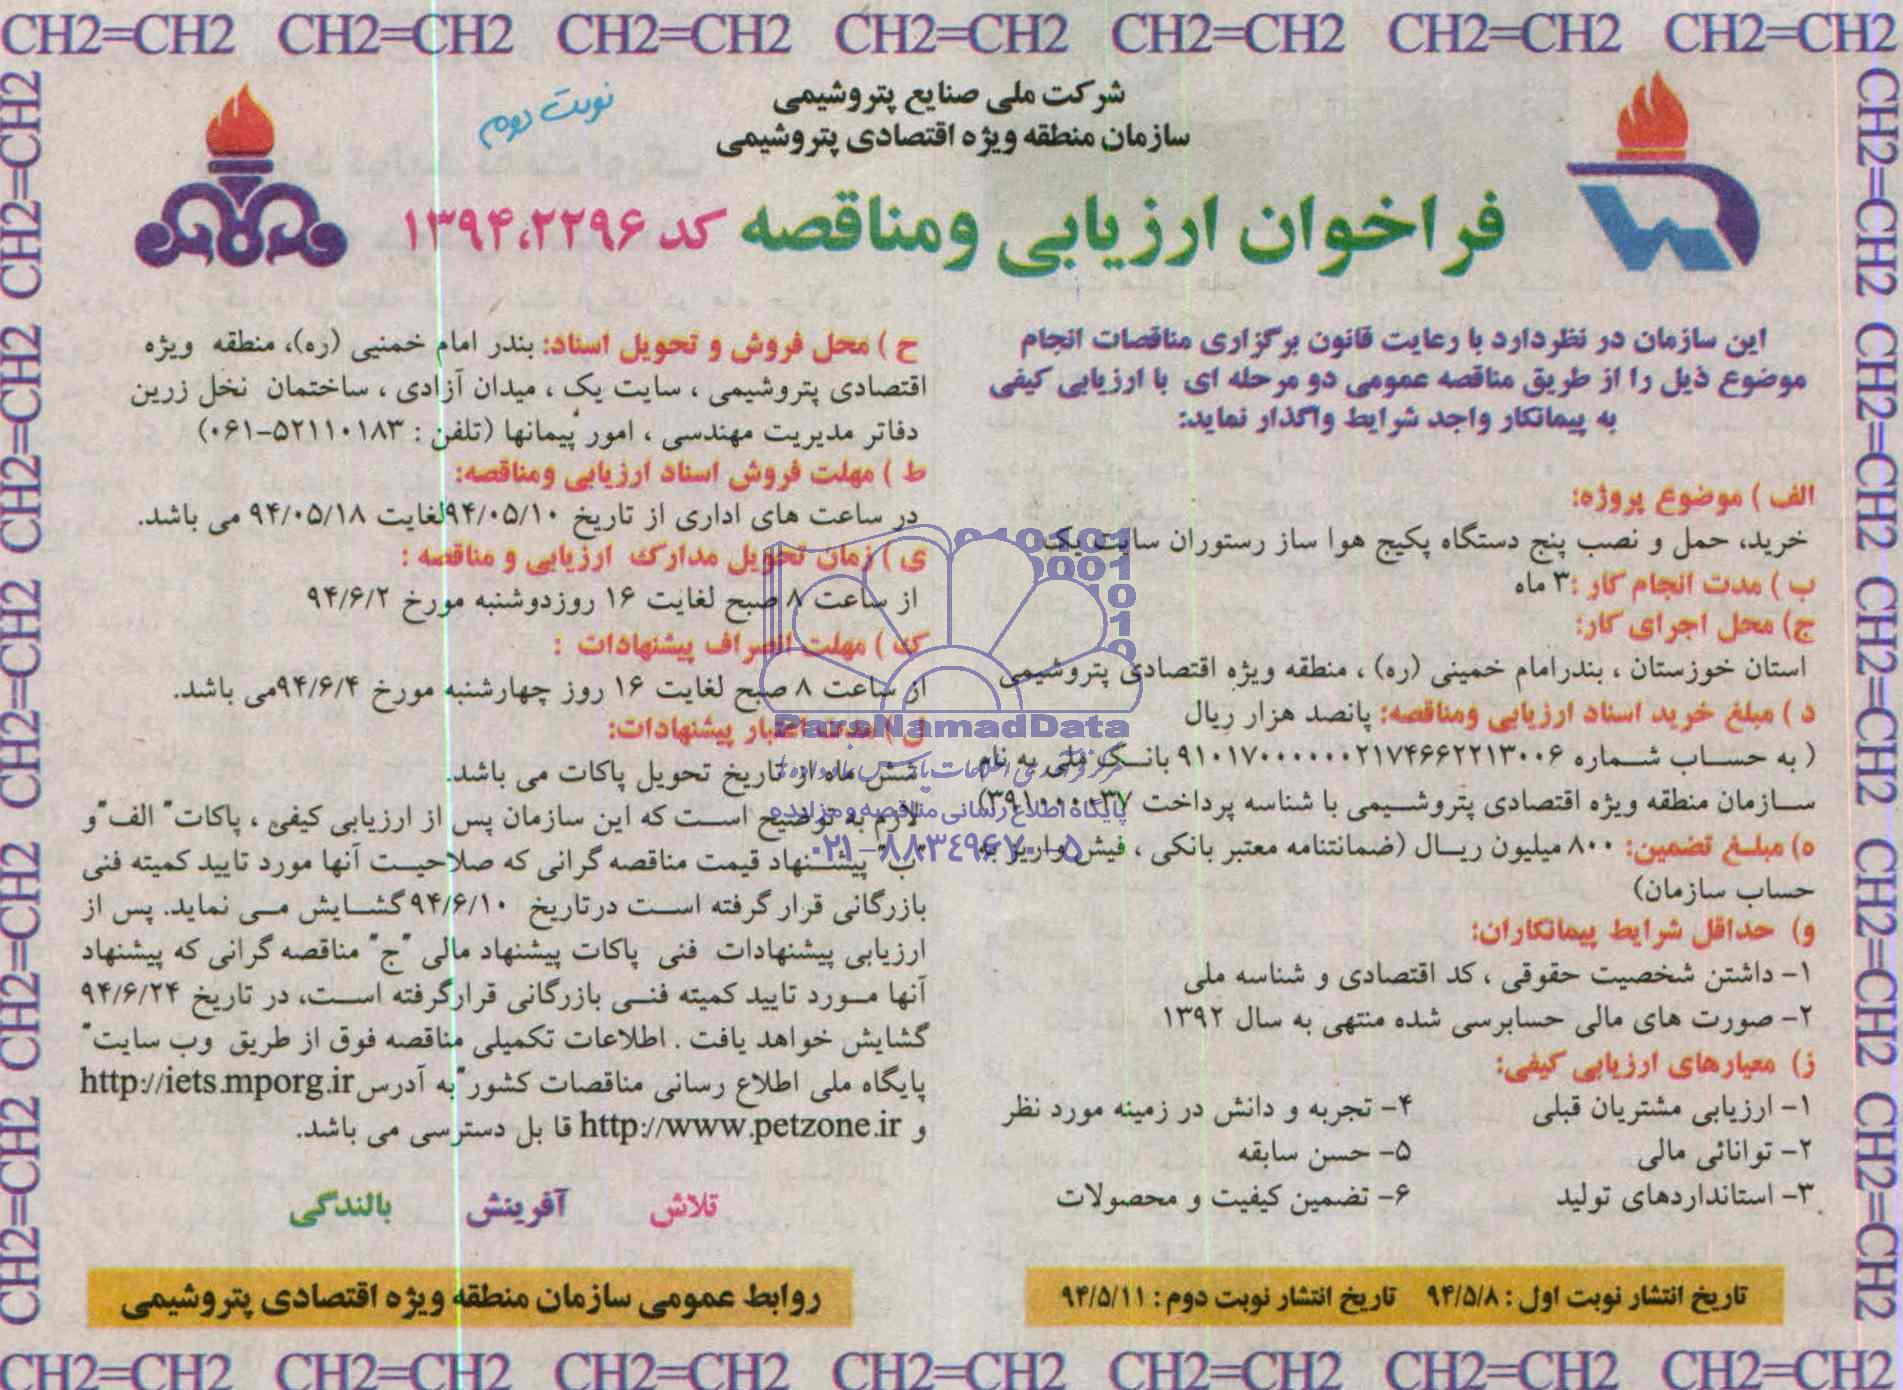 CH2=CH2 CH2=CH2 CH2=CH2 CH2=CH2 CH2=CH2 CH2=CH2 CH2=CH2
شرکت ملی صنایع پتروشیمی
سازمان منطقه ویژه اقتصادی پتروشیمی
نوبت دوم
فراخوان ارزیابی ومناقصه کد ۱۳۹۴،۲۲۹۶
این سازمان در نظردارد با رعایت قانون برگزاری مناقصات انجام
موضوع ذیل را از طریق مناقصه عمومی دو مرحله ای با ارزیابی کیفی
به پیمانکار واجد شرایط واگذار نماید:
الف ) موضوع پروژه:
خرید، حمل و نصب پنج دستگاه پکیج هوا ساز رستوران سایت یک
ب ) مدت انجام کار :۳ ماه
ج) محل اجرای کار:
استان خوزستان ، بندرامام خمینی (ره) ، منطقه ویژه اقتصادی پتروشیمی
د ) مبلغ خرید اسناد ارزیابی ومناقصه: پانصد هزار ریال
( به حساب شماره ۹۱۰۱۷۰۰۰۰۰۰۰۲۱۷۴۶۶۲۲۱۳۰۰۶ بانک ملی به نام
سازمان منطقه ویژه اقتصادی پتروشیمی با شناسه پرداخت ۳۹۱۰۰۰۰۳۷)
ه) مبلغ تضمین: ۸۰۰ میلیون ریال (ضمانتنامه معتبر بانکی ، فیش واریز به
حساب سازمان)
و) حداقل شرایط پیمانکاران:
۱- داشتن شخصیت حقوقی ، کد اقتصادی و شناسه ملی
۲- صورت های مالی حسابرسی شده منتهی به سال ۱۳۹۲
ز) معیارهای ارزیابی کیفی:
۱- ارزیابی مشتریان قبلی
۲- توانائی مالی
۳- استانداردهای تولید
۴- تجربه و دانش در زمینه مورد نظر
۵- حسن سابقه
۶- تضمین کیفیت و محصولات
تاریخ انتشار نوبت اول : ۹۴/۵/۸ تاریخ انتشار نوبت دوم : ۹۴/۵/۱۱
ح ) محل فروش و تحویل اسناد: بندر امام خمنیی (ره)، منطقه ویژه
اقتصادی پتروشیمی ، سایت یک ، میدان آزادی ، ساختمان نخل زرین
دفاتر مدیریت مهندسی ، امور پیمانها (تلفن : ۵۲۱۱۰۱۸۳-۰۶۱)
ط ) مهلت فروش اسناد ارزیابی ومناقصه:
در ساعت های اداری از تاریخ ۹۴/۰۵/۱۰لغایت ۹۴/۰۵/۱۸ می باشد.
ی ) زمان تحویل مدارک ارزیابی و مناقصه :
از ساعت ۸ صبح لغایت ۱۶ روزدوشنبه مورخ ۹۴/۶/۲
ک ) مهلت انصراف پیشنهادات :
از ساعت ۸ صبح لغایت ۱۶ روز چهارشنبه مورخ ۹۴/۶/۴می باشد.
ل ) مدت اعتبار پیشنهادات:
شش ماه از تاریخ تحویل پاکات می باشد.
لازم به توضیح است که این سازمان پس از ارزیابی کیفی ، پاکات" الف"و
"ب" پیشنهاد قیمت مناقصه گرانی که صلاحیت آنها مورد تایید کمیته فنی
بازرگانی قرار گرفته است درتاریخ ۹۴/۶/۱۰ گشایش می نماید. پس از
ارزیابی پیشنهادات فنی پاکات پیشنهاد مالی "ج" مناقصه گرانی که پیشنهاد
آنها مورد تایید کمیته فنی بازرگانی قرارگرفته است، در تاریخ ۹۴/۶/۲۴
گشایش خواهد یافت . اطلاعات تکمیلی مناقصه فوق از طریق وب سایت"
پایگاه ملی اطلاع رسانی مناقصات کشور"به آدرس http://iets.mporg.ir
و http://www.petzone.ir قا بل دسترسی می باشد.
تلاش آفرینش بالندگی
روابط عمومی سازمان منطقه ویژه اقتصادی پتروشیمی
ParsNamadData
پایگاه اطلاع رسانی مناقصه و مزایده
۰۲۱-۸۸۳۴۹۶۷۰-۵
CH2=CH2 CH2=CH2 CH2=CH2 CH2=CH2 CH2=CH2
CH2=CH2 CH2=CH2 CH2=CH2 CH2=CH2 CH2=CH2
CH2=CH2 CH2=CH2 CH2=CH2 CH2=CH2 CH2=CH2 CH2=CH2 CH2=CH2